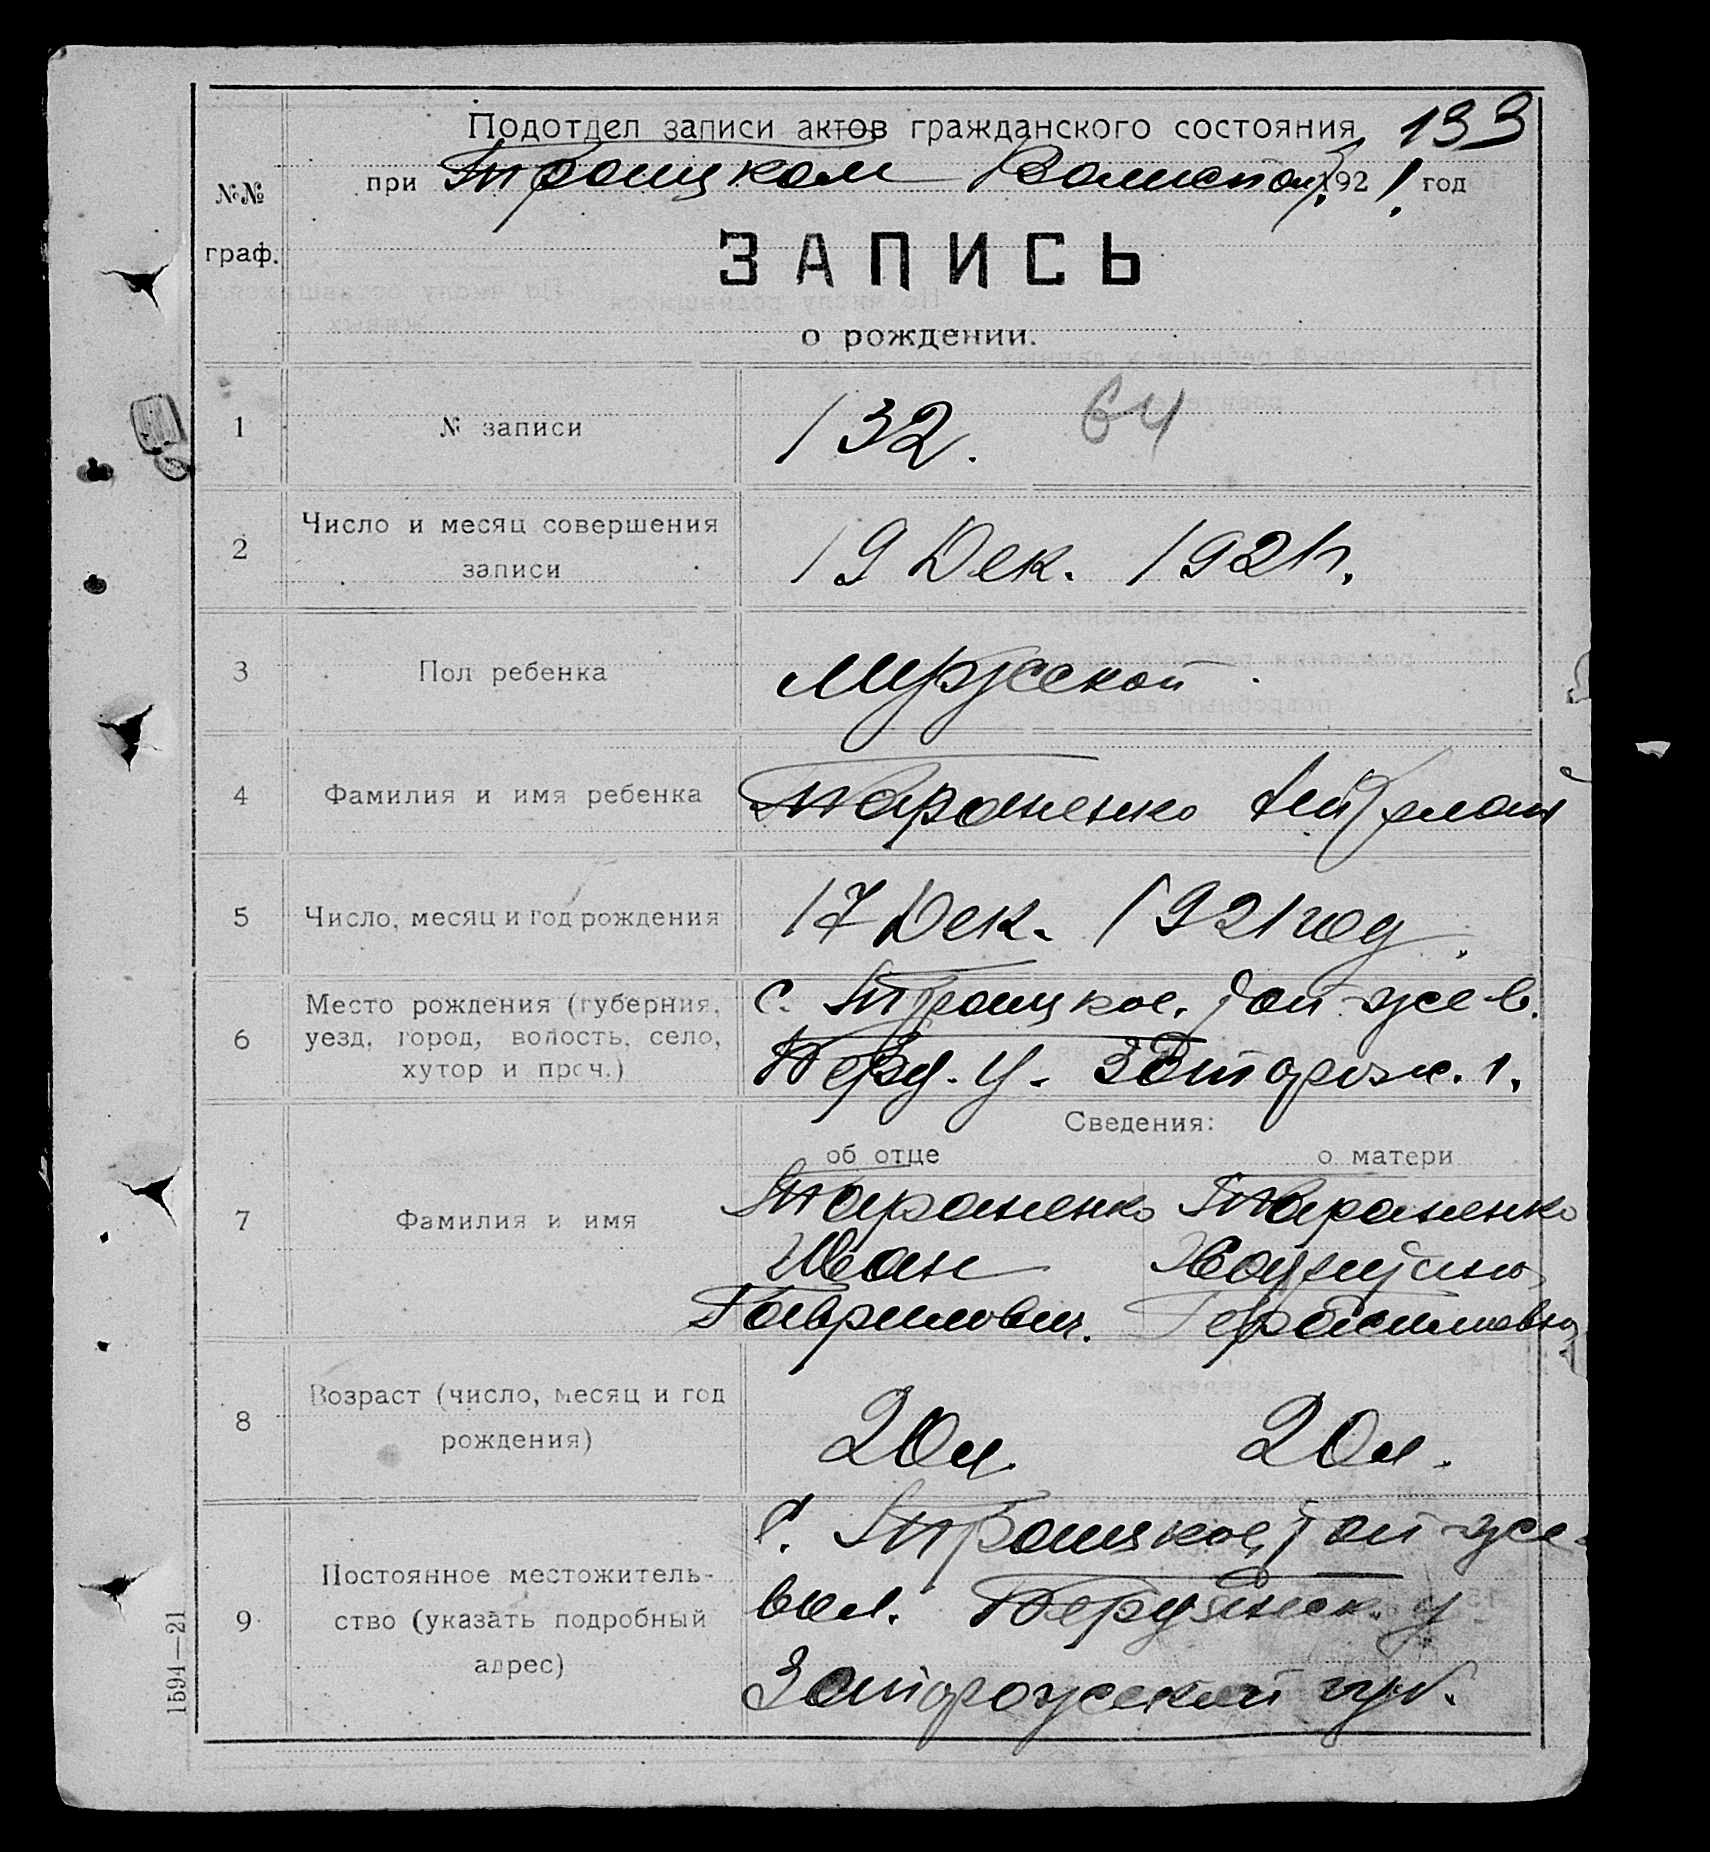 Подотдел записи актов гражданского состояния 133
при Троицком Волиспол. 1921 год
№№
граф.
ЗАПИСЬ
о рождении.
1 № записи 132. 64
2 Число и месяц совершения
записи 19 Дек. 1921г.
3 Пол ребенка Мужской
4 Фамилия и имя ребенка Тараненко
5 Число, месяц и год рождения 17 Дек. 1921 год.
6 Место рождения (губерния,
уезд, город, волость, село,
хутор и проч.)
с. Троицкое, той-же в.
Берд. у. Запорож. г.
Сведения:
об отце о матери
7 Фамилия и имя
Тараненко Тараненко
Иван
Гаврилович. Герасимовна
8 Возраст (число, месяц и год
рождения)
20 л. 20 л.
9 Постоянное местожитель-
ство (указать подробный
адрес)
С. Троицкое, той-же
вол. Бердянск. у
Запорожской губ.
1594—21